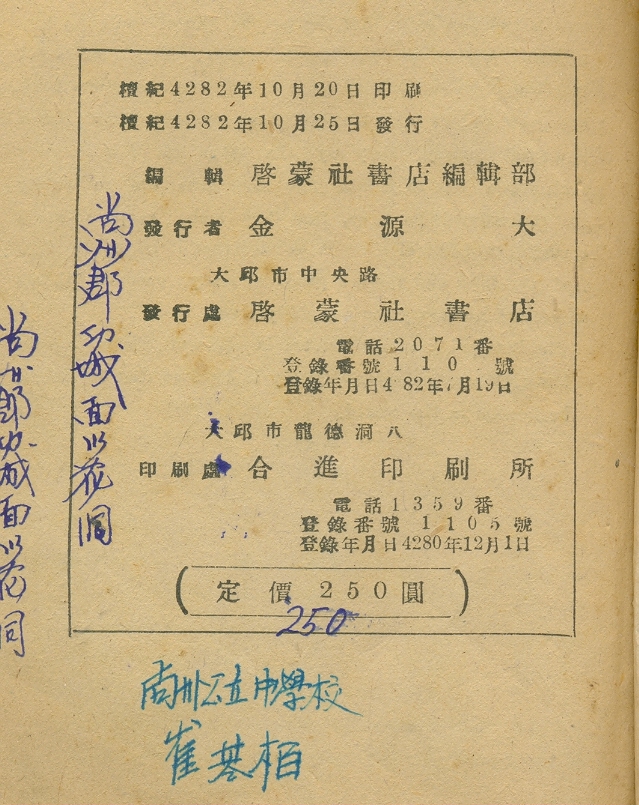 檀紀4282年10月20日 印刷
檀紀4282年10月25日 發行
編輯 啓蒙社書店編輯部
發行者 金源大
大邱市中央路
發行處 啓蒙社書店
電話2071番
登錄番號110號
登錄年月日4 82年7月19日
大邱市龍德洞八
印刷處 合進印刷所
電話1359番
登錄番號1105號
登錄年月日4280年12月1日
定價 250圓
250
尚州公立中學校
崔基栢
尚州郡 功城面以花洞
尚州郡功城面以花洞